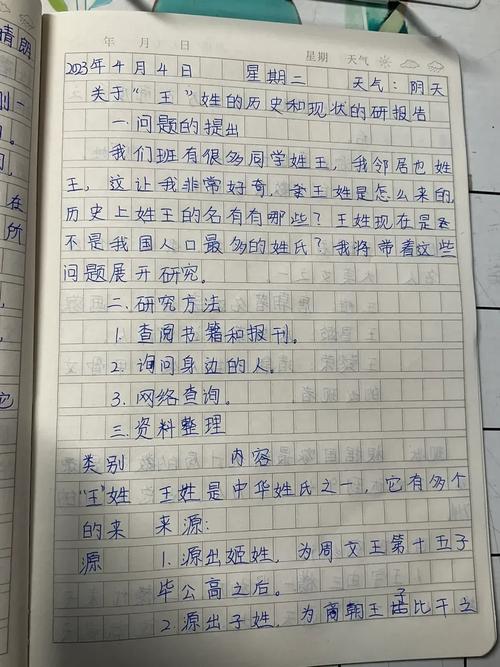 年 月 日 星期 天气
2023年4月4日 星期二 天气：阴天
关于“王”姓的历史和现状的研报告
一.问题的提出
我们班有很多同学姓王，我邻居也姓
王，这让我非常好奇，王姓是怎么来的，
历史上姓王的名有有哪些？王姓现在是
不是我国人口最多的姓氏？我将带着这些
问题展开研究。
二.研究方法
1.查阅书籍和报刊。
2.询问身边的人。
3.网络查询。
三.资料整理
类别 内容
“王”姓 王姓是中华姓氏之一，它有多个
的来 来源：
源 1.源出姬姓，为周文王第十五子
毕公高之后。
2.源出子姓，为商朝王子比干之
晴朗
别一
了。
在
所
它